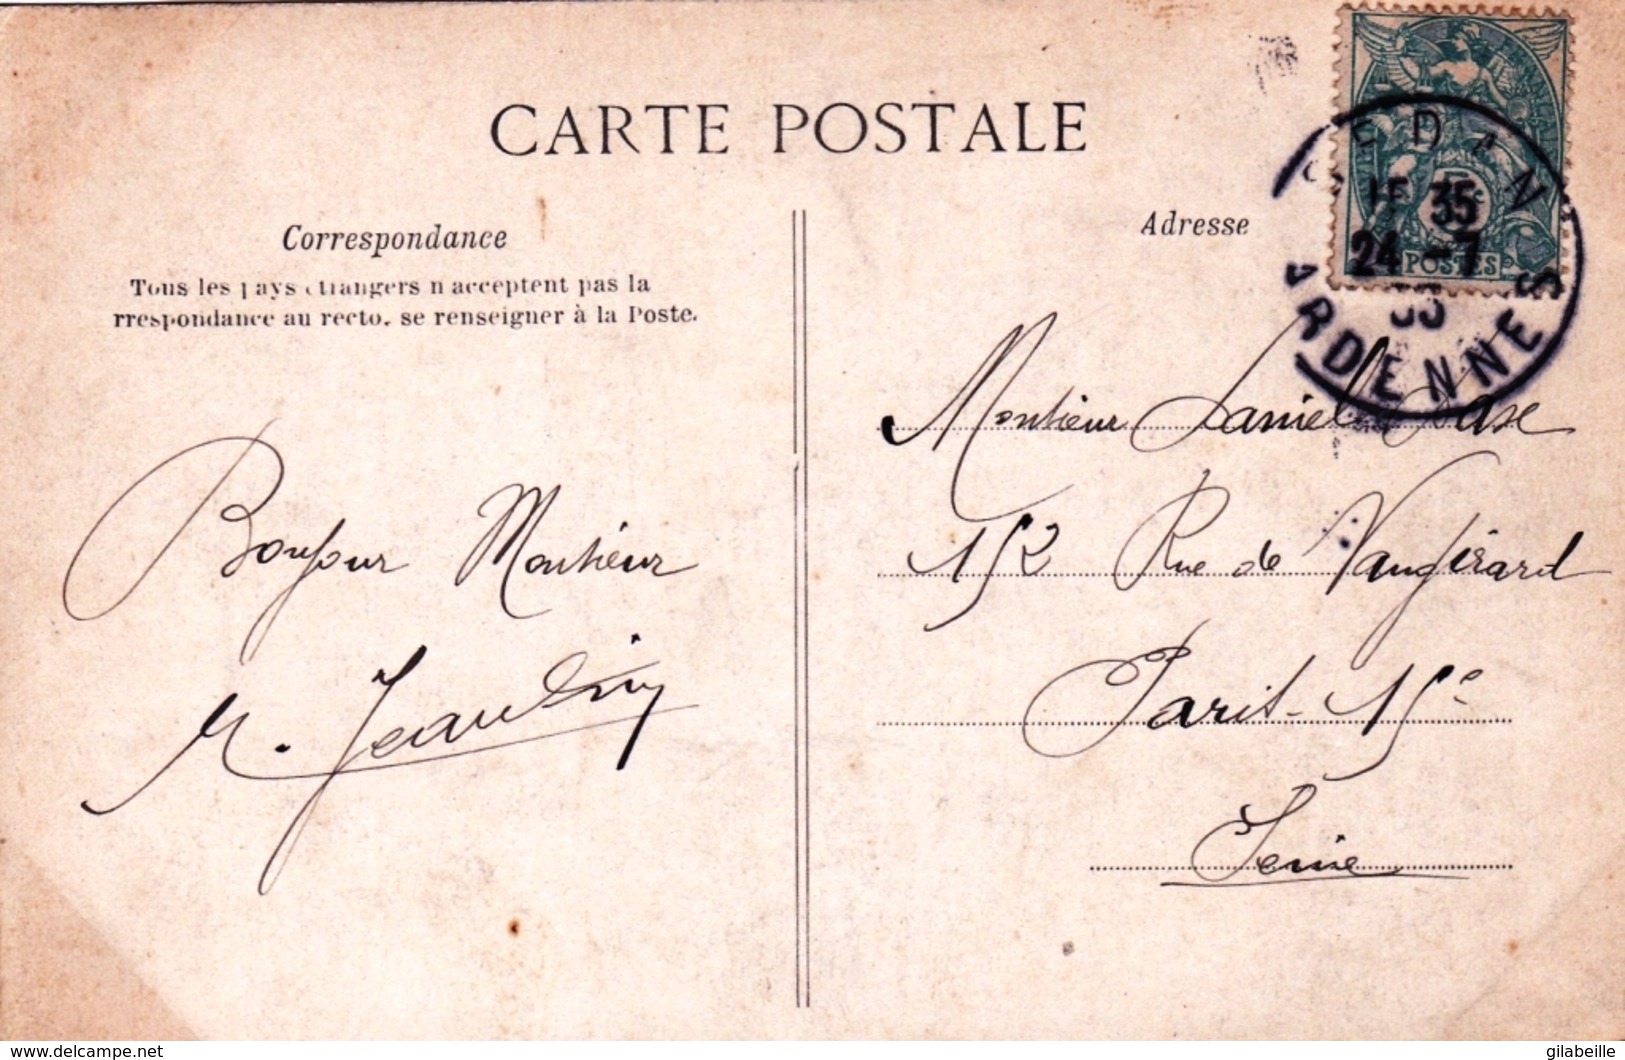 CARTE POSTALE
Correspondance
Tous les pays étrangers n'acceptent pas la
rrespondance au recto. se renseigner à la Poste.
Bonjour Monsieur
Adresse
SEDAN
35
24 - 7
ARDENNES
POSTES
Monsieur Daniel
152 Rue de Vaugirard
Paris - 15e
Seine
delcampe.net
gilabeille